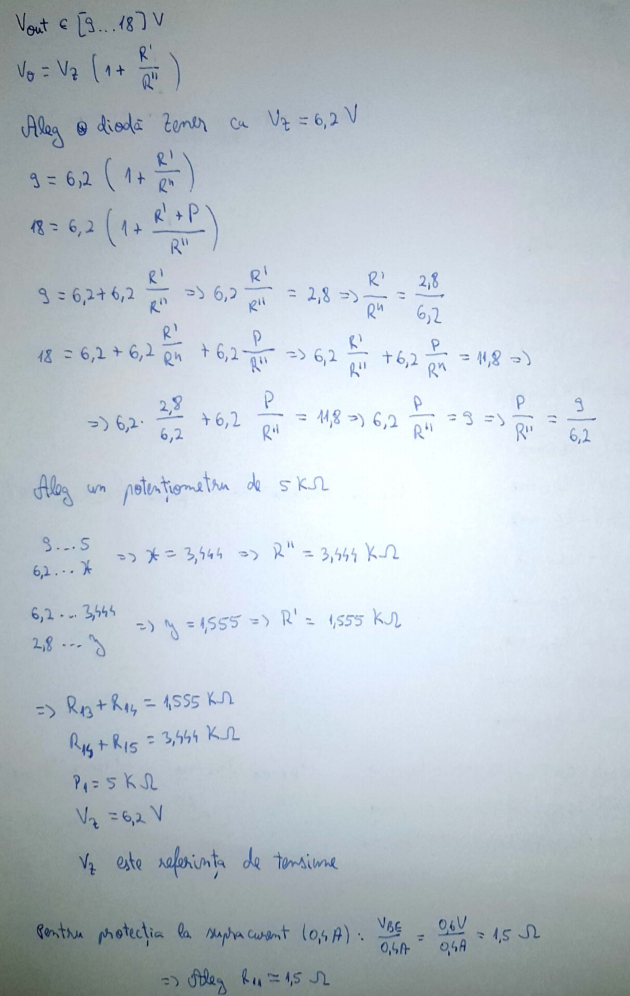 Vout ∈ [9...18] V
V0 = VZ (1 + R'/R'')
Aleg o diodă Zener cu VZ = 6,2 V
9 = 6,2 (1 + R'/R'')
18 = 6,2 (1 + (R' + P)/R'')
9 = 6,2 + 6,2 R'/R'' => 6,2 R'/R'' = 2,8 => R'/R'' = 2,8/6,2
18 = 6,2 + 6,2 R'/R'' + 6,2 P/R'' => 6,2 R'/R'' + 6,2 P/R'' = 11,8 =>
=> 6,2 · 2,8/6,2 + 6,2 P/R'' = 11,8 => 6,2 P/R'' = 9 => P/R'' = 9/6,2
Aleg un potențiometru de 5 KΩ
9...5
6,2...x => x = 3,444 => R'' = 3,444 KΩ
6,2...3,444
2,8...y => y = 1,555 => R' = 1,555 KΩ
=> R13 + R14 = 1,555 KΩ
R15 = 3,444 KΩ
P1 = 5 KΩ
VZ = 6,2 V
VZ este referința de tensiune
Pentru protecția la supracurent (0,4A): VBE/0,4A = 0,6V/0,4A = 1,5 Ω
=> Aleg R11 = 1,5 Ω